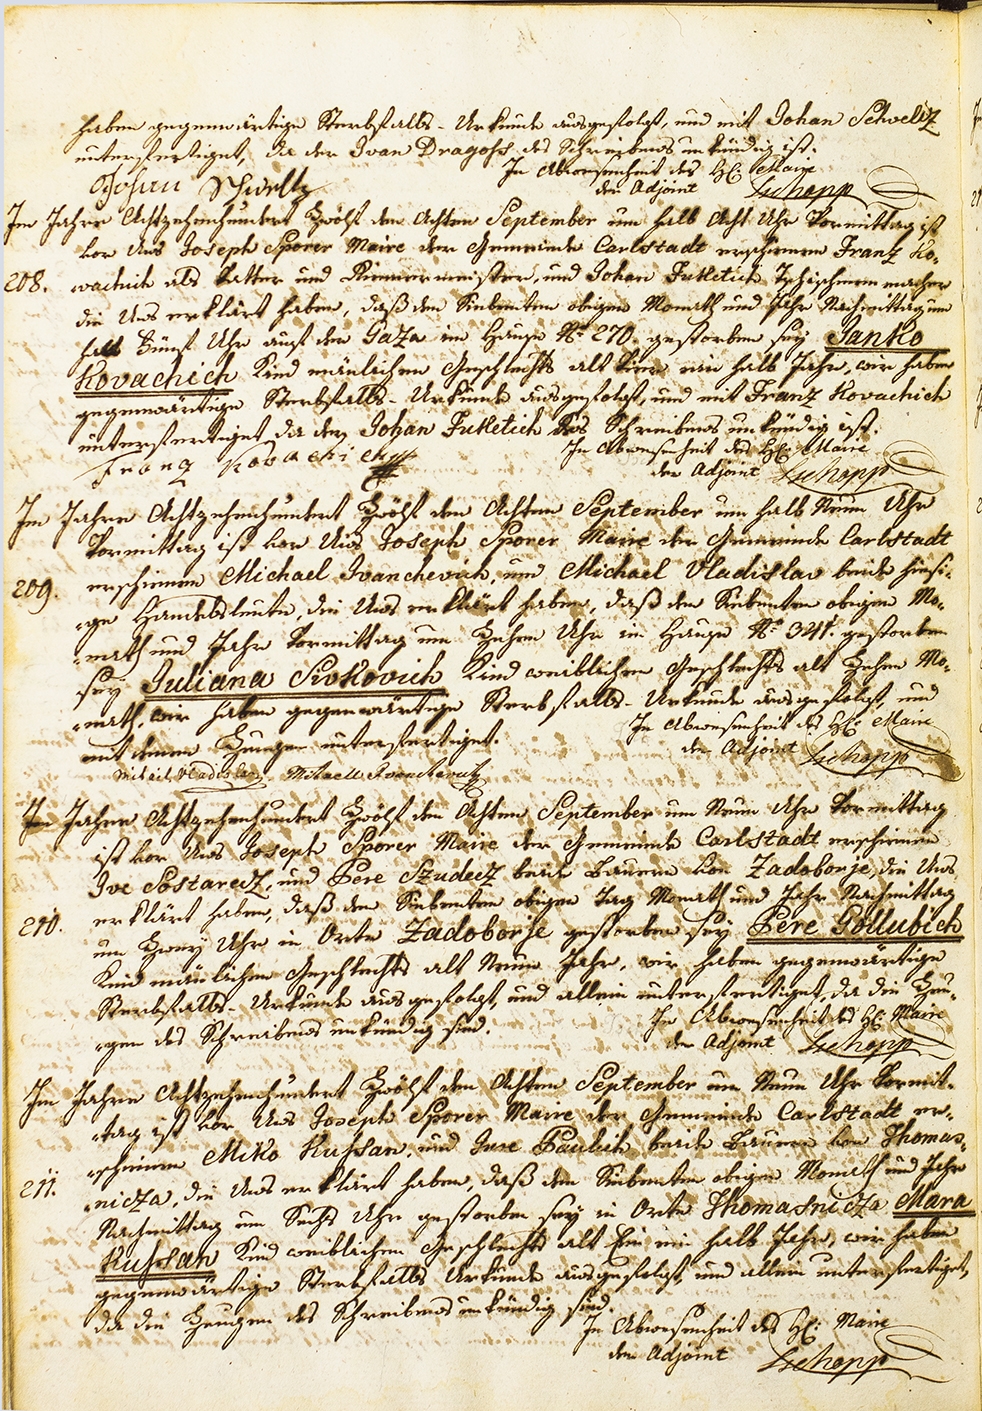 haben gegenwärtige Sterbfalls-Urkunde ausgefolgt, und mit Johan Schveltz
unterfertiget, da der Ivan Dragohs des Schreibens unkündig ist.
In Abwesenheit des H: Maire
der Adjoint
Johan Schveltz
Im Jahre Achtzehenhundert Zwölf den Achten September um halb Acht Uhr Vormittag ist
vor Uns Joseph Sporer Maire der Gemeinde Carlstadt erschienen Franz Ko-
208. vachich als Vatter und Riemermeister, und Johan Futletich Tschischmenmacher
die Uns erklärt haben, daß den Siebenten obigen Monath und Jahr Nachmittag um
halb Fünf Uhr auf der Gaza im Hause No 270. gestorben sey Janko
Kovachich Kind mänlichen Geschlechts alt Vier ein halb Jahr, wir haben
gegenwärtige Sterbfalls-Urkunde ausgefolgt, und mit Franz Kovachich
unterfertiget, da der Johan Futletich des Schreibens unkündig ist.
Franz Kovachich
In Abwesenheit des H: Maire
der Adjoint
Im Jahre Achtzehenhundert Zwölf den Achten September um halb Neun Uhr
Vormittag ist vor Uns Joseph Sporer Maire der Gemeinde Carlstadt
209. erschienen Michael Ivanchevich, und Michael Vladislav beide hiesi-
ge Handelsleute, die Uns erklärt haben, daß den Siebenten obigen Mo-
nath und Jahr Vormittag um Zehen Uhr im Hause No 341. gestorben
sey Juliana Sivkovich Kind weiblichen Geschlechts alt Zehen Mo-
nath, wir haben gegenwärtige Sterbfalls-Urkunde ausgefolgt, und
mit denen Zeugen unterfertiget.
In Abwesenheit des H: Maire
der Adjoint
Im Jahre Achtzehenhundert Zwölf den Achten September um Neun Uhr Vormittag
ist vor Uns Joseph Sporer Maire der Gemeinde Carlstadt erschienen
Ive Postarecz, und Pere Szudecz beide Bauern von Zadoborje, die Uns
210. erklärt haben, daß den Siebenten obigen Tag Monath und Jahr Nachmittag
um Zwey Uhr in Orte Zadoborje gestorben sey Pere Gollubich
Kind mänlichen Geschlechts alt Neun Jahr, wir haben gegenwärtige
Sterbfalls-Urkunde ausgefolgt, und allein unterfertiget, da die Zeu-
gen des Schreibens unkündig sind.
In Abwesenheit des H: Maire
der Adjoint
Im Jahre Achtzehenhundert Zwölf den Achten September um Neun Uhr Vormit-
tag ist vor Uns Joseph Sporer Maire der Gemeinde Carlstadt er-
schienen Miko Kussan, und Jure Paulich beide Bauern von Thomas-
211. nicza, die Uns erklärt haben, daß den Siebenten obigen Monath und Jahr
Nachmittag um Sechs Uhr gestorben sey in Orte Thomasnicza Mara
Kussan Kind weiblichen Geschlechts alt Ein ein halb Jahr, wir haben
gegenwärtige Sterbfalls Urkunde ausgefolgt, und allein unterfertiget,
da die Zeugen des Schreibens unkündig sind.
In Abwesenheit des H: Maire
der Adjoint